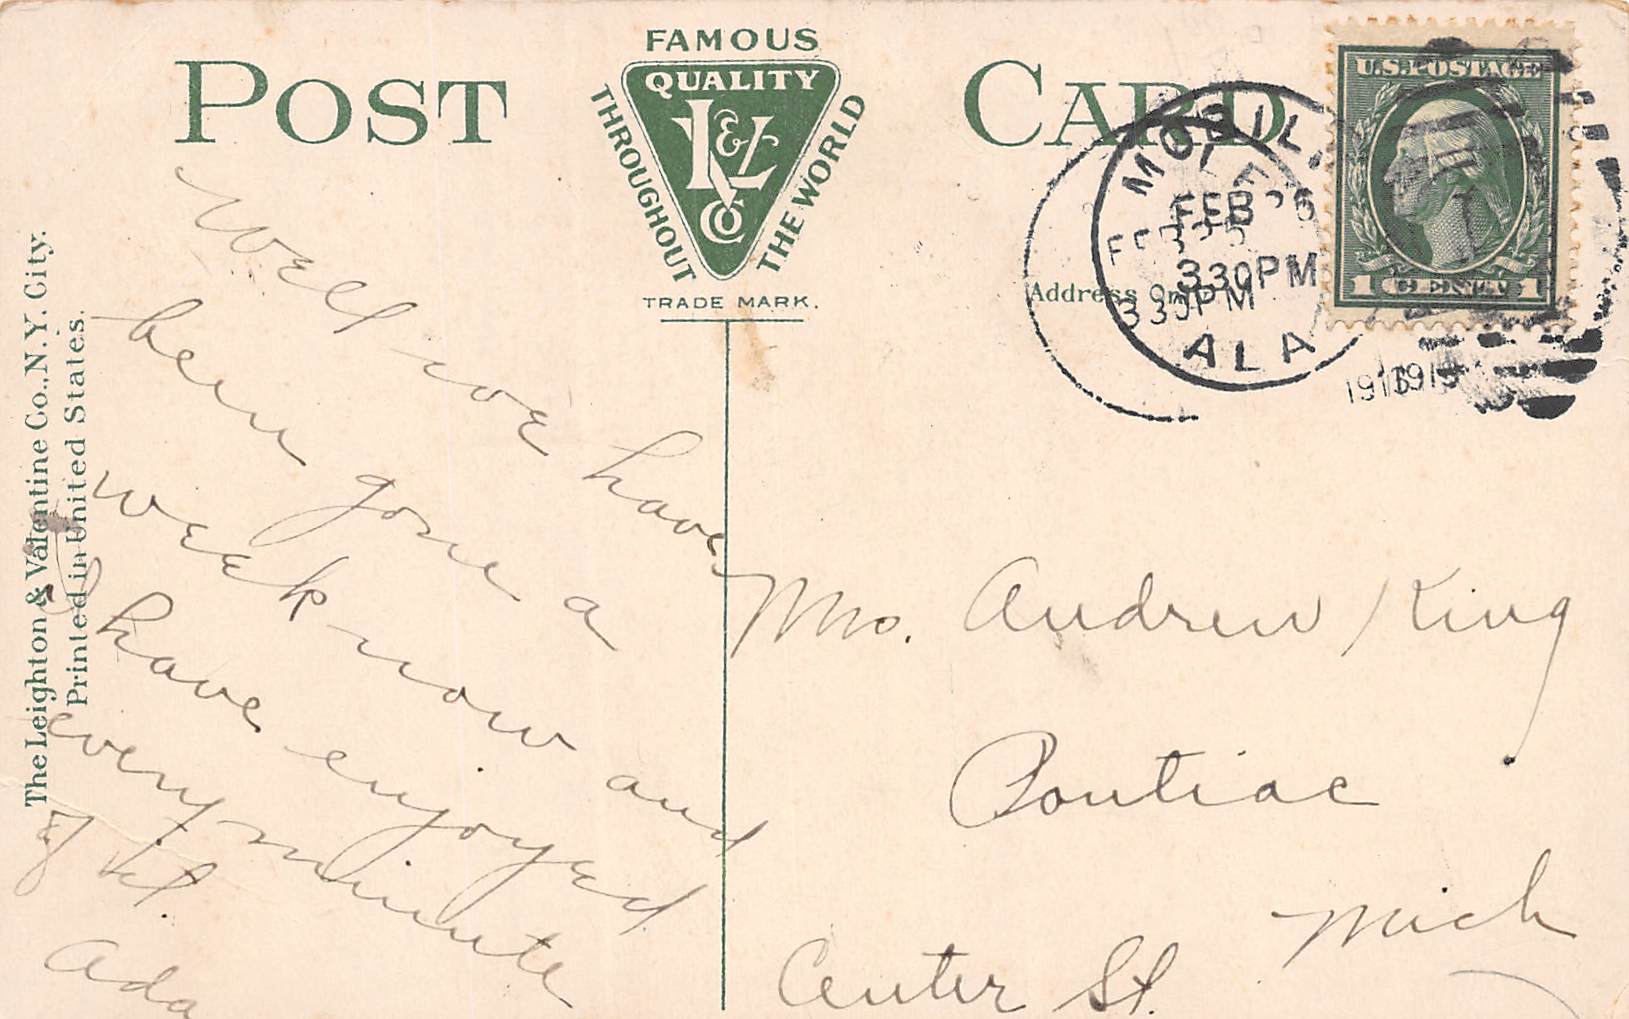 POST CARD
FAMOUS
QUALITY
L&V
CO
THROUGHOUT
THE WORLD
TRADE MARK.
Address Only
The Leighton & Valentine Co., N.Y. City.
Printed in United States.
MOBILE
FEB 25
330PM
ALA
FEB 25
330PM
U.S. POSTAGE
1 CENT 1
Well we have
been gone a
week now and
have enjoyed
every minute
of it.
Ada
Mrs. Andrew King
Pontiac
Mich
Center St.